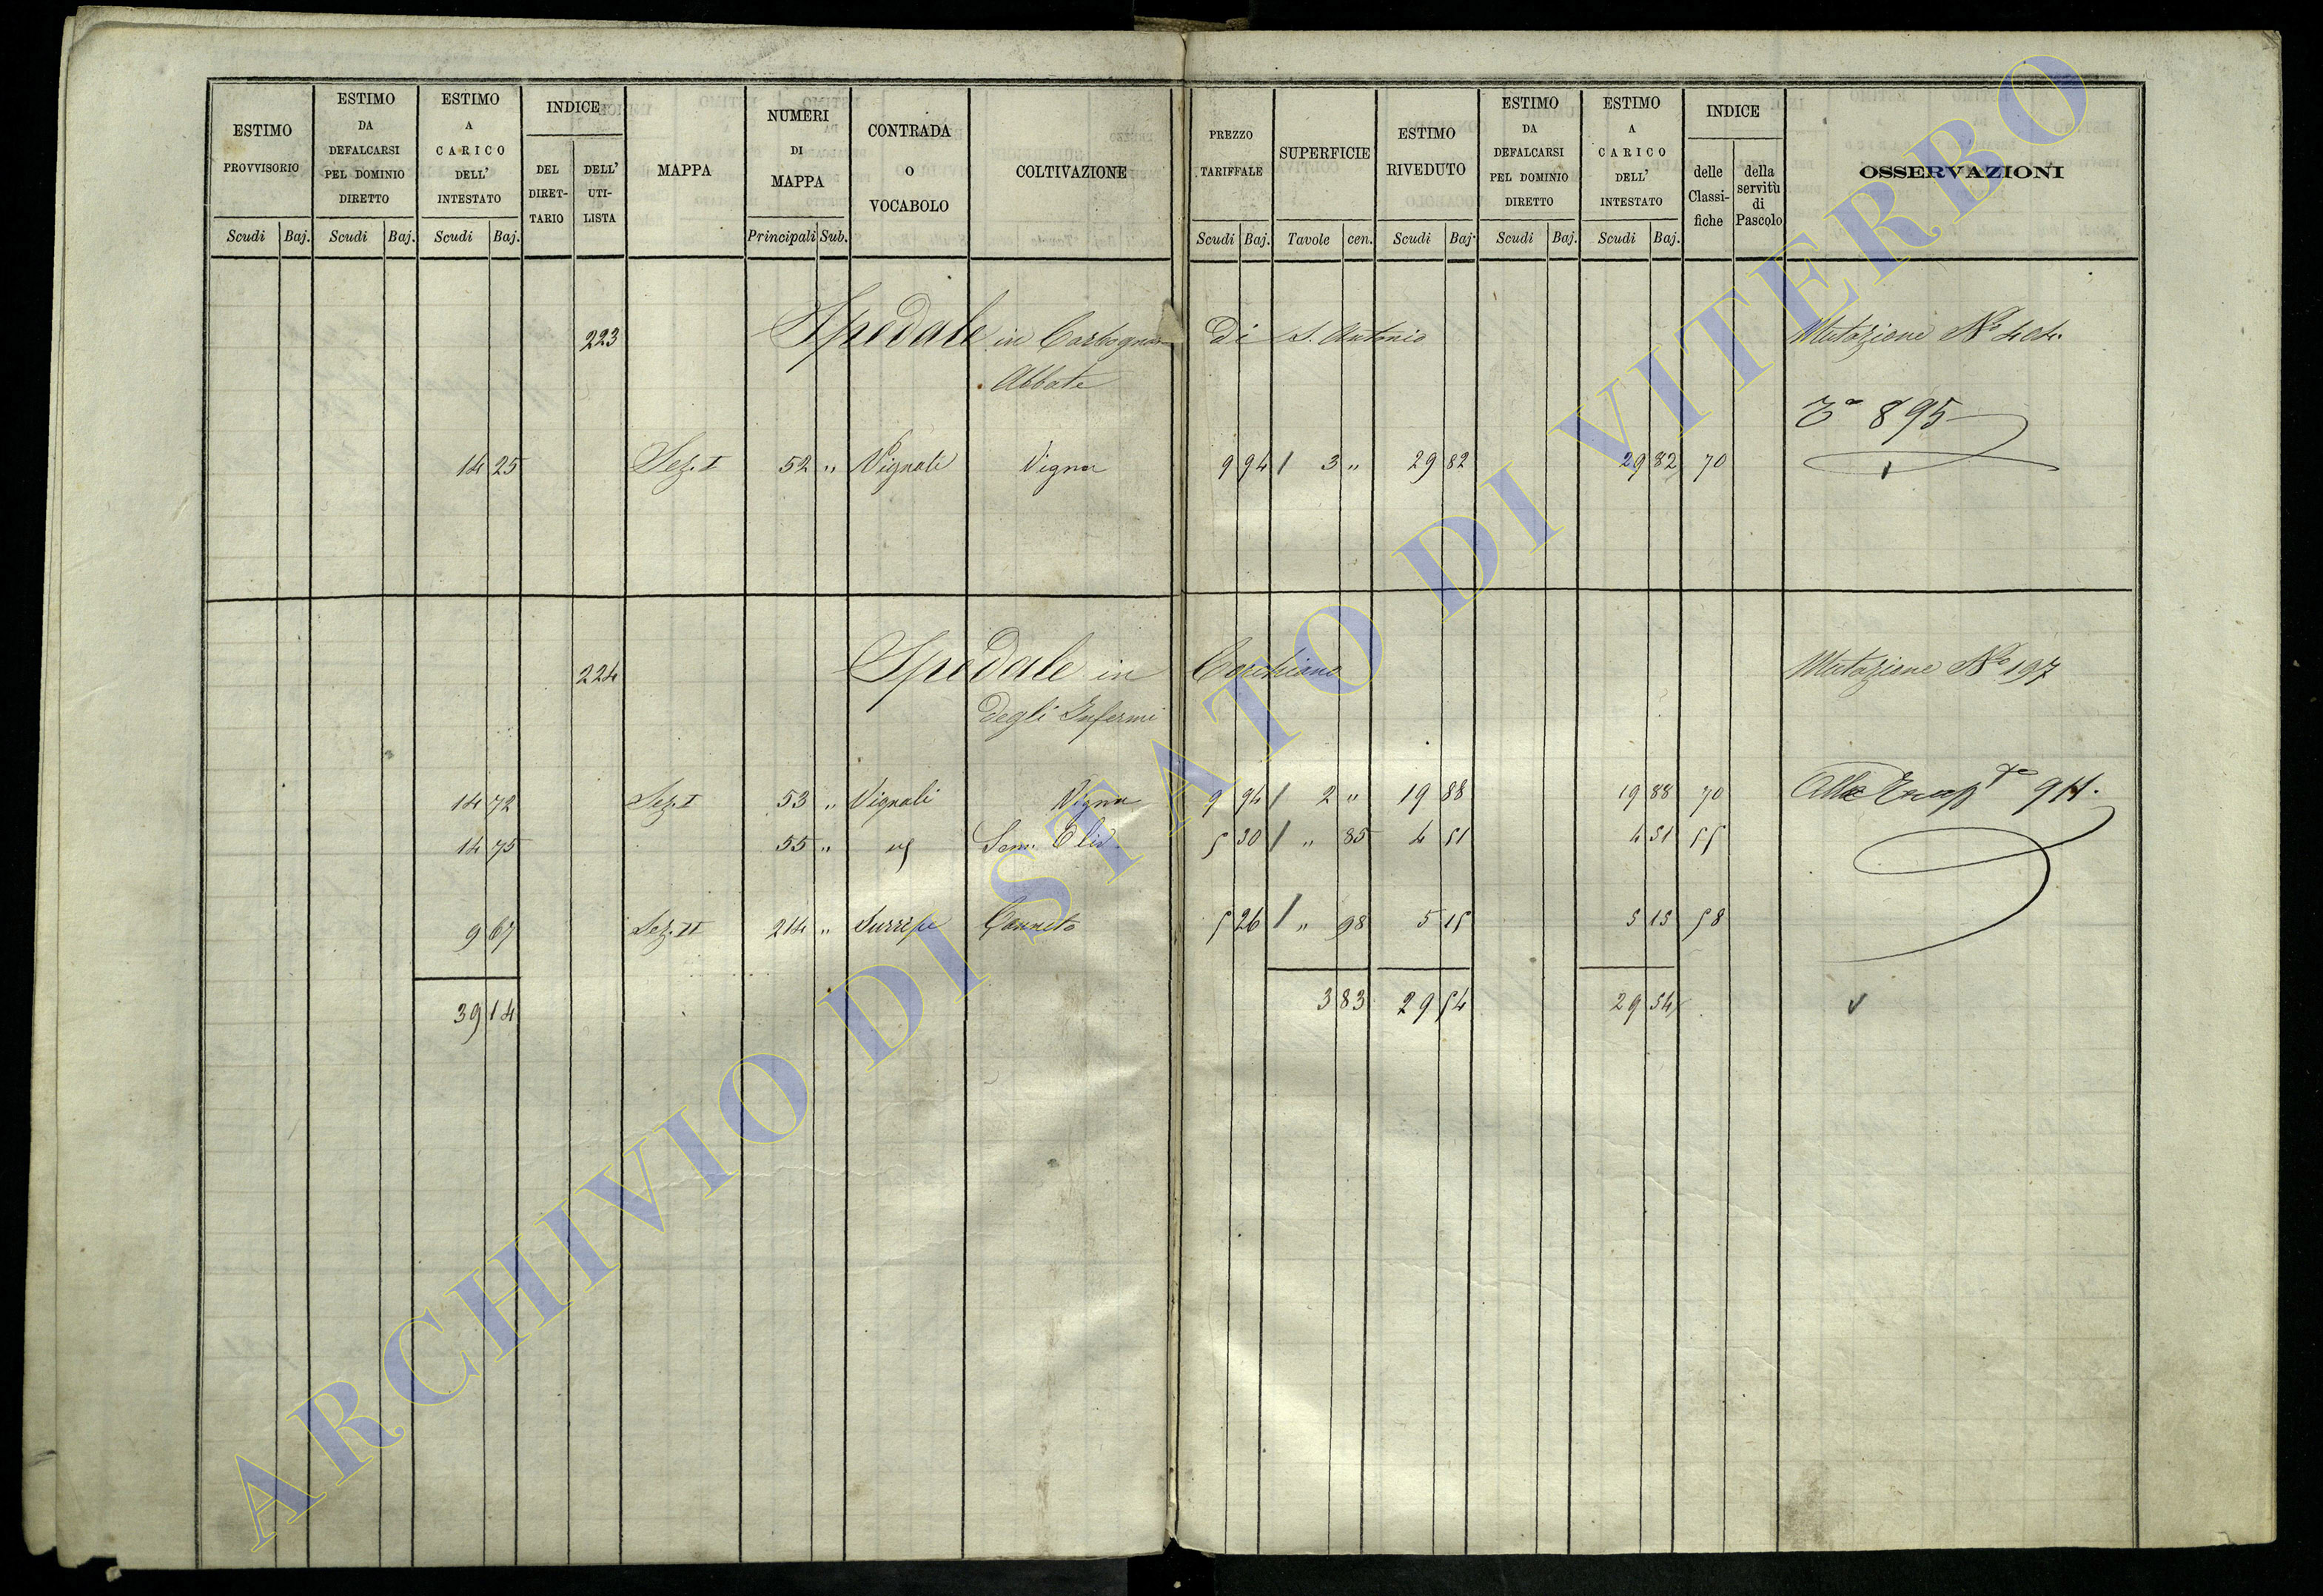 ESTIMO PROVVISORIO
ESTIMO DA DEFALCARSI PEL DOMINIO DIRETTO
ESTIMO A CARICO DELL' INTESTATO
INDICE
DEL DIRET-TARIO
DELL' UTI-LISTA
MAPPA
NUMERI DI MAPPA
CONTRADA O VOCABOLO
COLTIVAZIONE
PREZZO TARIFFALE
SUPERFICIE
ESTIMO RIVEDUTO
ESTIMO DA DEFALCARSI PEL DOMINIO DIRETTO
ESTIMO A CARICO DELL' INTESTATO
INDICE
delle Classi-fiche
della servitù di Pascolo
OSSERVAZIONI
Scudi Baj. Scudi Baj. Scudi Baj. Principali Sub. Scudi Baj. Tavole cen. Scudi Baj. Scudi Baj. Scudi Baj.
223 Spedale in Carbognano di S. Antonio Mutazione Nº 404.
Abbate
895
14 25 Sez. I 52 " Vignali Vigna 9 94 / 3 " 29 82 29 82 70
224 Spedale in Corchiano Mutazione Nº 197
degli Infermi
14 72 Sez. I 53 " Vignali Vigna 9 94 / 2 " 19 88 19 88 70 911.
14 75 55 " Sem. Oliv. 5 30 / " 85 4 51 4 51 55
9 67 Sez. II 214 " Surripe Canneto 5 26 / " 98 5 15 5 15 58
39 14 3 83 29 54 29 54
ARCHIVIO DI STATO DI VITERBO